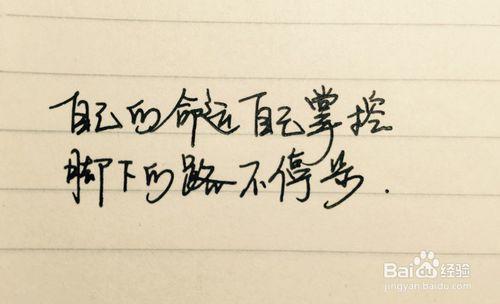 自己的命运自己掌控
脚下的路不停朵.
Baidu经验
jingyan.baidu.com